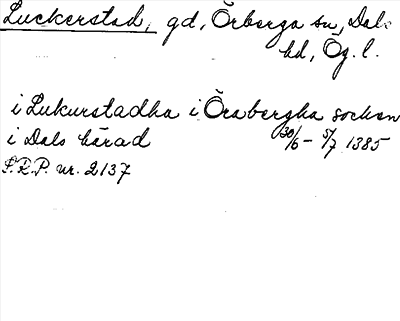 Luckerstad, gd, Örberga sn, Dals
hd, Ög. l.
i Lukurstadha i Örabergha sockn
i Dals härad 30/6 – 5/7 1385
S.R.P. nr. 2137